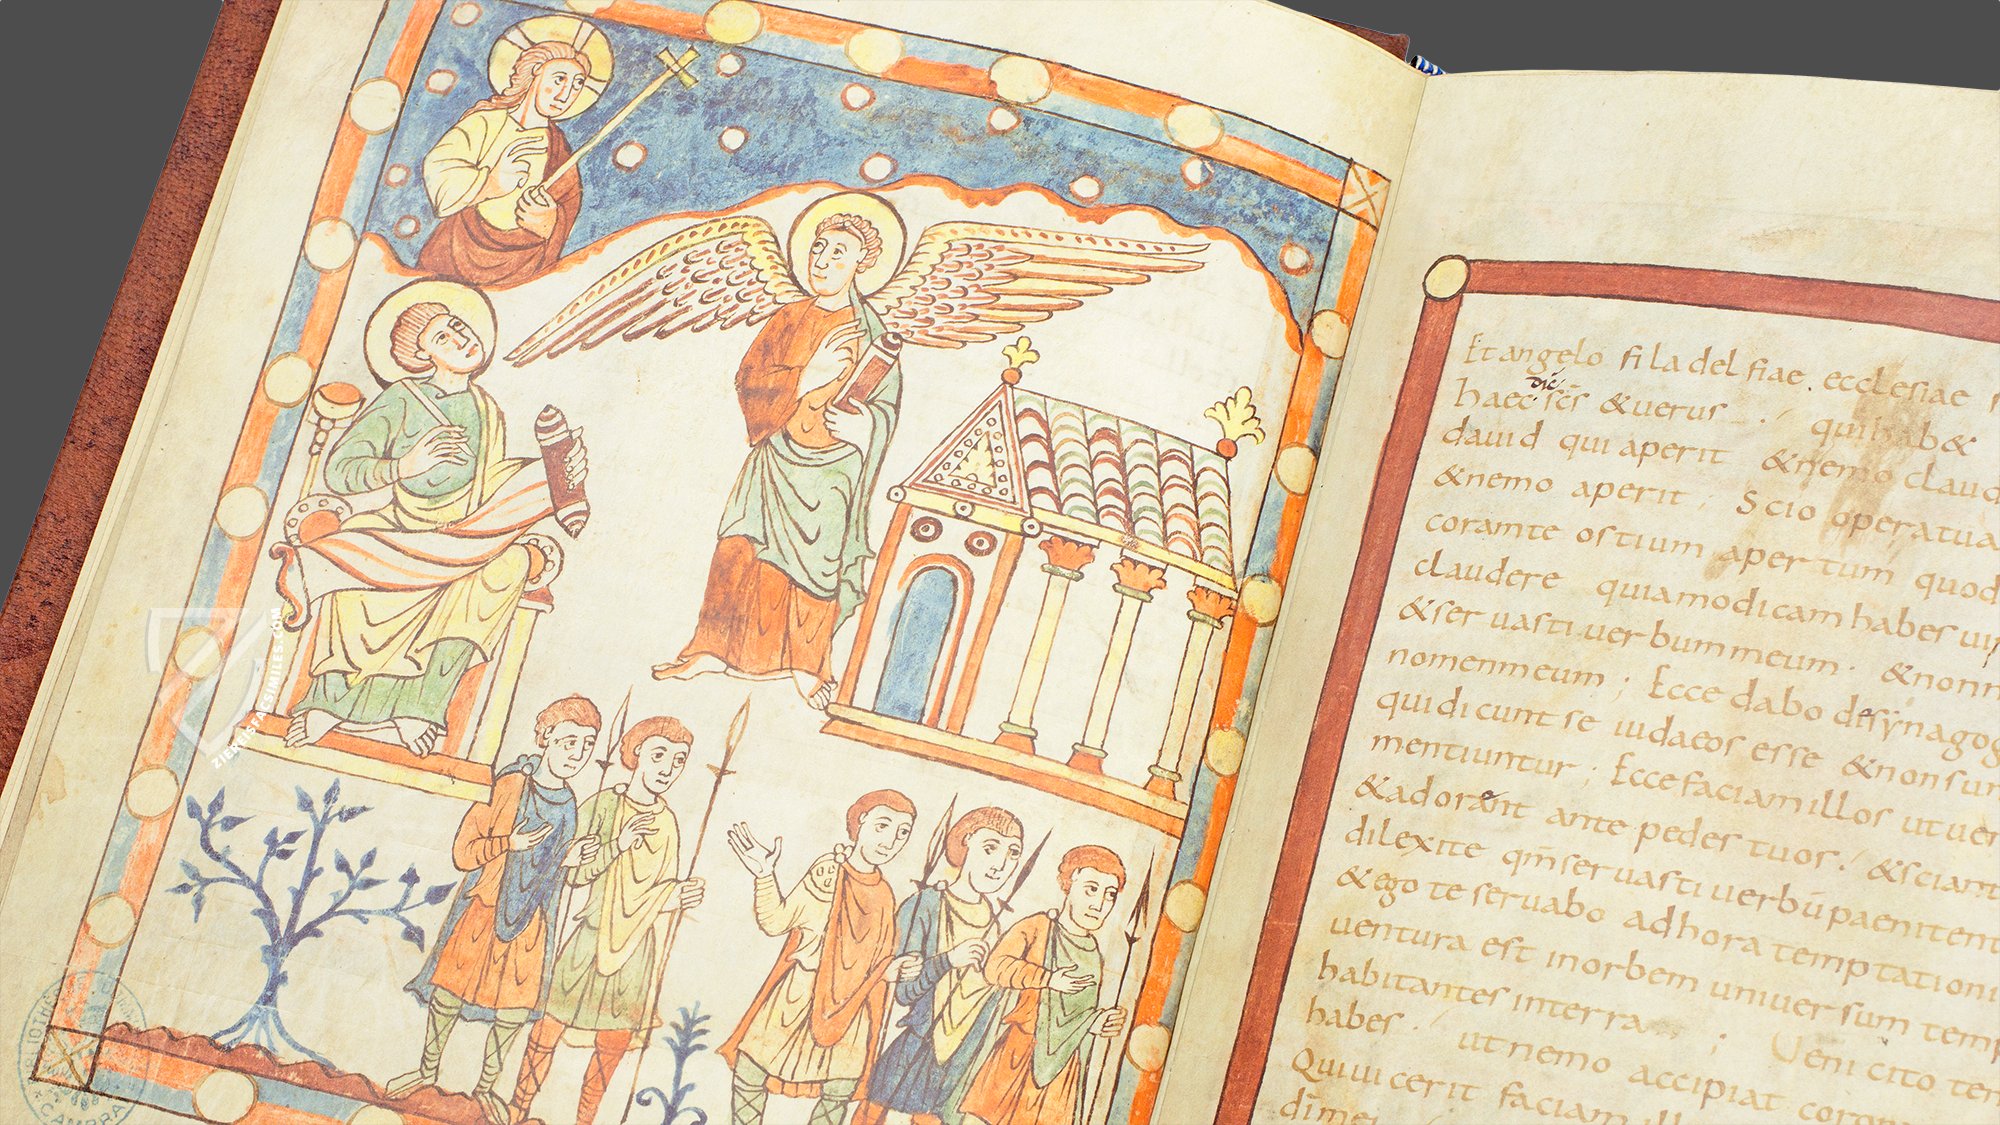 Et angelo filadelfiae. ecclesiae
haec dic scs & uerus . quihab&
dauid qui aperit & nemo claud
& nemo aperit , Scio operatua
coramte ostium apertum quod
claudere quiamodicam habes uir
& seruasti uerbummeum . & nonn
nomenmeum ; Ecce dabo desynagog
qui dicunt se iudaeos esse & nonsun
mentiuntur ; Ecce faciamillos utuen
& adorent ante pedes tuos . & sciant
dilexite qm seruasti uerbū paenitent
& ego te seruabo adhora temptationi
uentura est inorbem uniuersum temp
habitantes interra ; Uenicito ten
habes . utnemo accipiat coron
Quiuicerit faciam ill
dīmei
ZIEREISFACSIMILES.COM